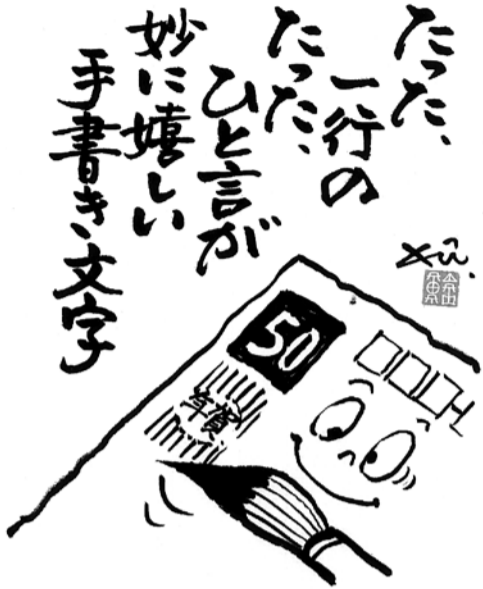 たった、
一行の
たった、
ひと言が
妙に嬉しい
手書き文字
50
年賀